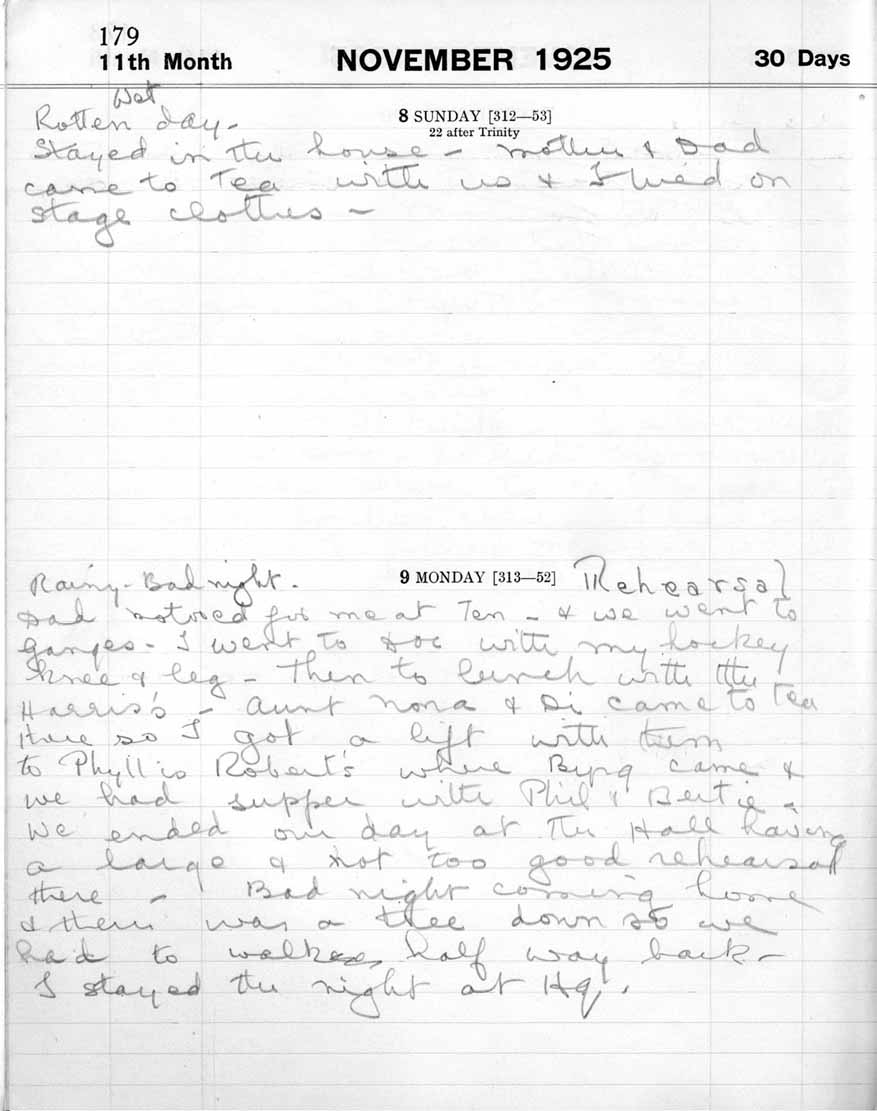 179
11th Month NOVEMBER 1925 30 Days
Wet
Rotten day -
8 SUNDAY [312—53]
22 after Trinity
Stayed in the house - mother & Dad
came to Tea with us & I tried on
stage clothes -
Rainy - Bad night.
9 MONDAY [313—52]
Rehearsal
Dad motored for me at Ten - & we went to
Ganges - I went to Doc with my hockey
knee & leg - Then to lunch with the
Harris's - Aunt Nora & Di came to tea
there so I got a lift with them
to Phyllis Robert's where Byrg came &
we had supper with Phil & Bertie -
We ended our day at the Hall having
a large & not too good rehearsal
there - Bad night coming home
& there was a tree down so we
had to walk half way back -
I stayed the night at Hq.